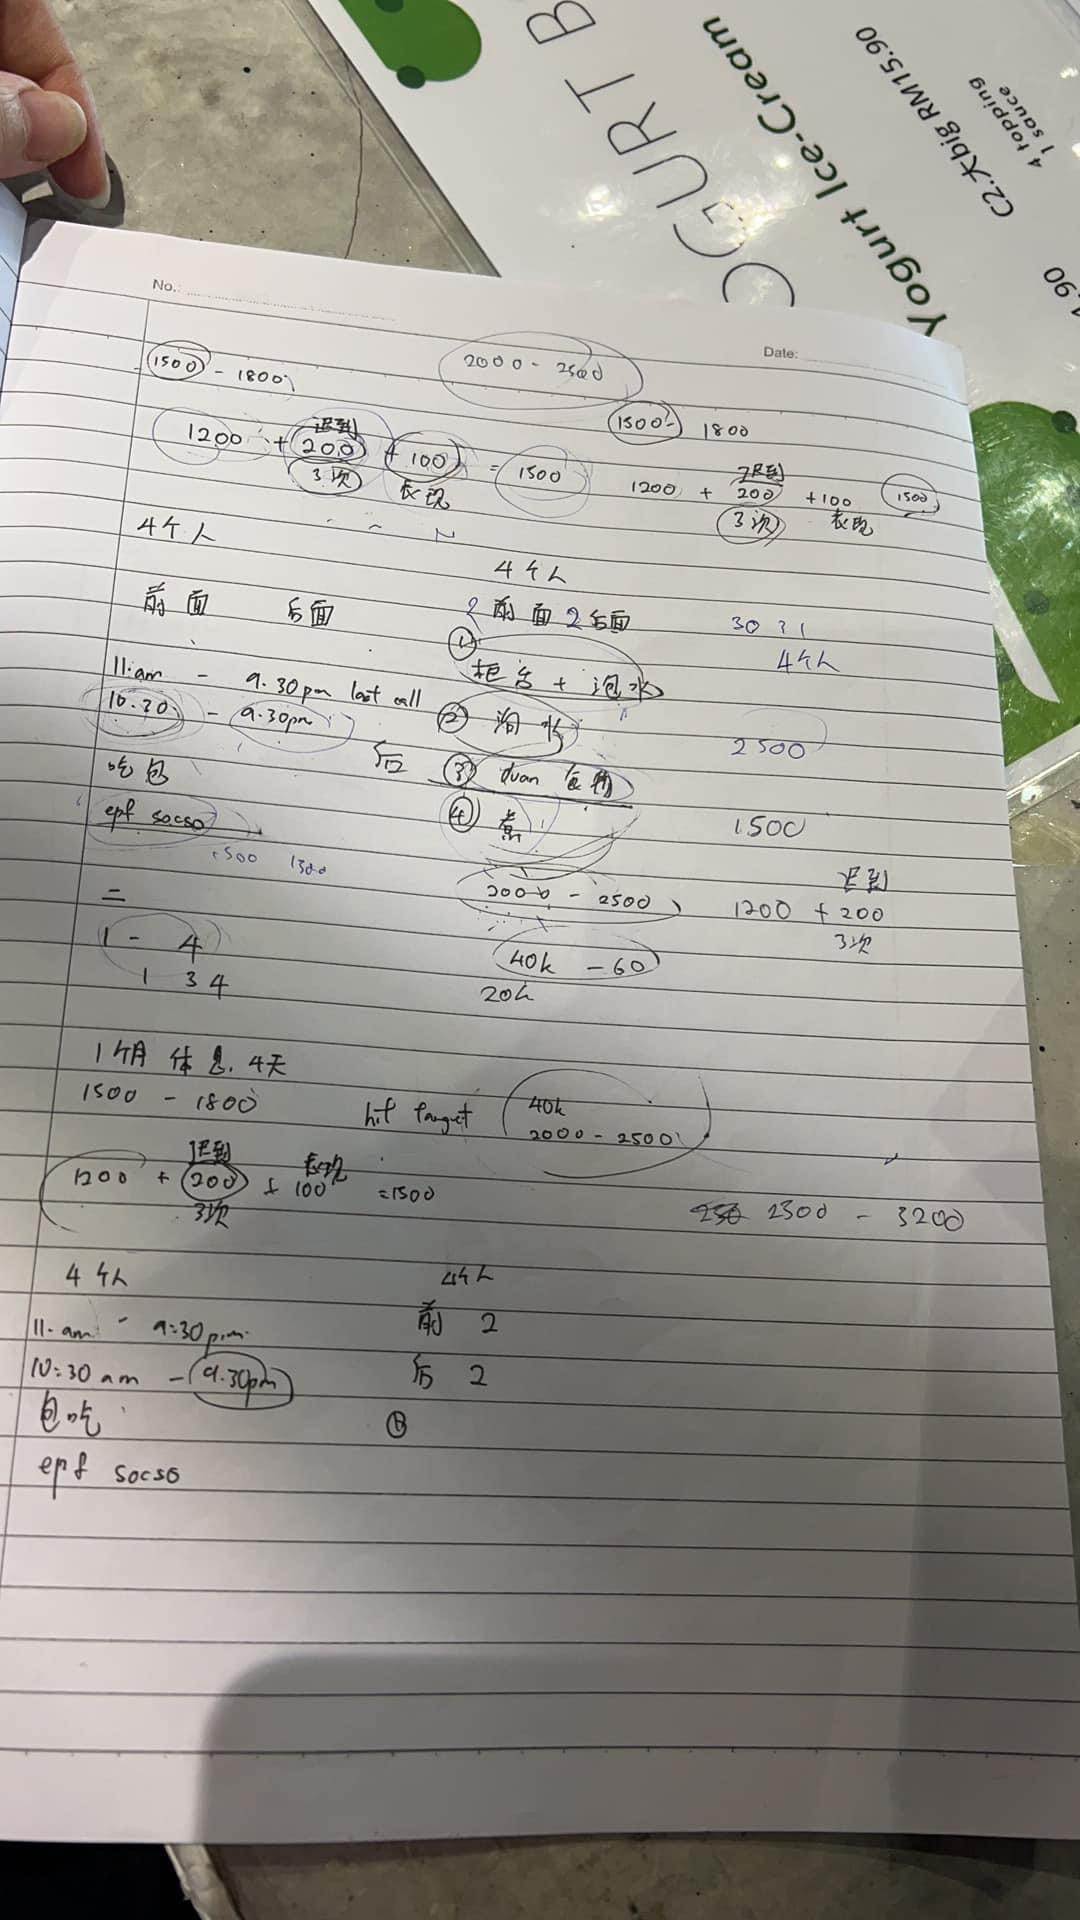 YOGURT B
Yogurt Ice-Cream
C2.大big RM15.90
4 topping
1 sauce
.90
No.:
Date:
1500 - 1800
2000 - 2500
1500- 1800
迟到
1200 + 200 + 100 = 1500
3次 表现
迟到
1200 + 200 +100 1500
3次 表现
4个人
4个人
前面 后面
2前面 2后面
30 31
4个人
① 柜台 + 泡水
11.am - 9.30pm last call
10.30 - 9.30pm
②
水
2500
后 ③ duan 食物
吃包
④ 煮
1500
epf socso
1500 1300
迟到
2000 - 2500
1200 + 200
3次
二
1 - 4
1 3 4
40k - 60
20k
1个月 休息 4天
1500 - 1800
hit target 40k
2000 - 2500
迟到 表现
1200 + 200 + 100 =1500
3次
2300 - 3200
4个人 4个人
11.am - 9:30pm 前 2
10:30 am - 9.30pm 后 2
包吃
epf socso